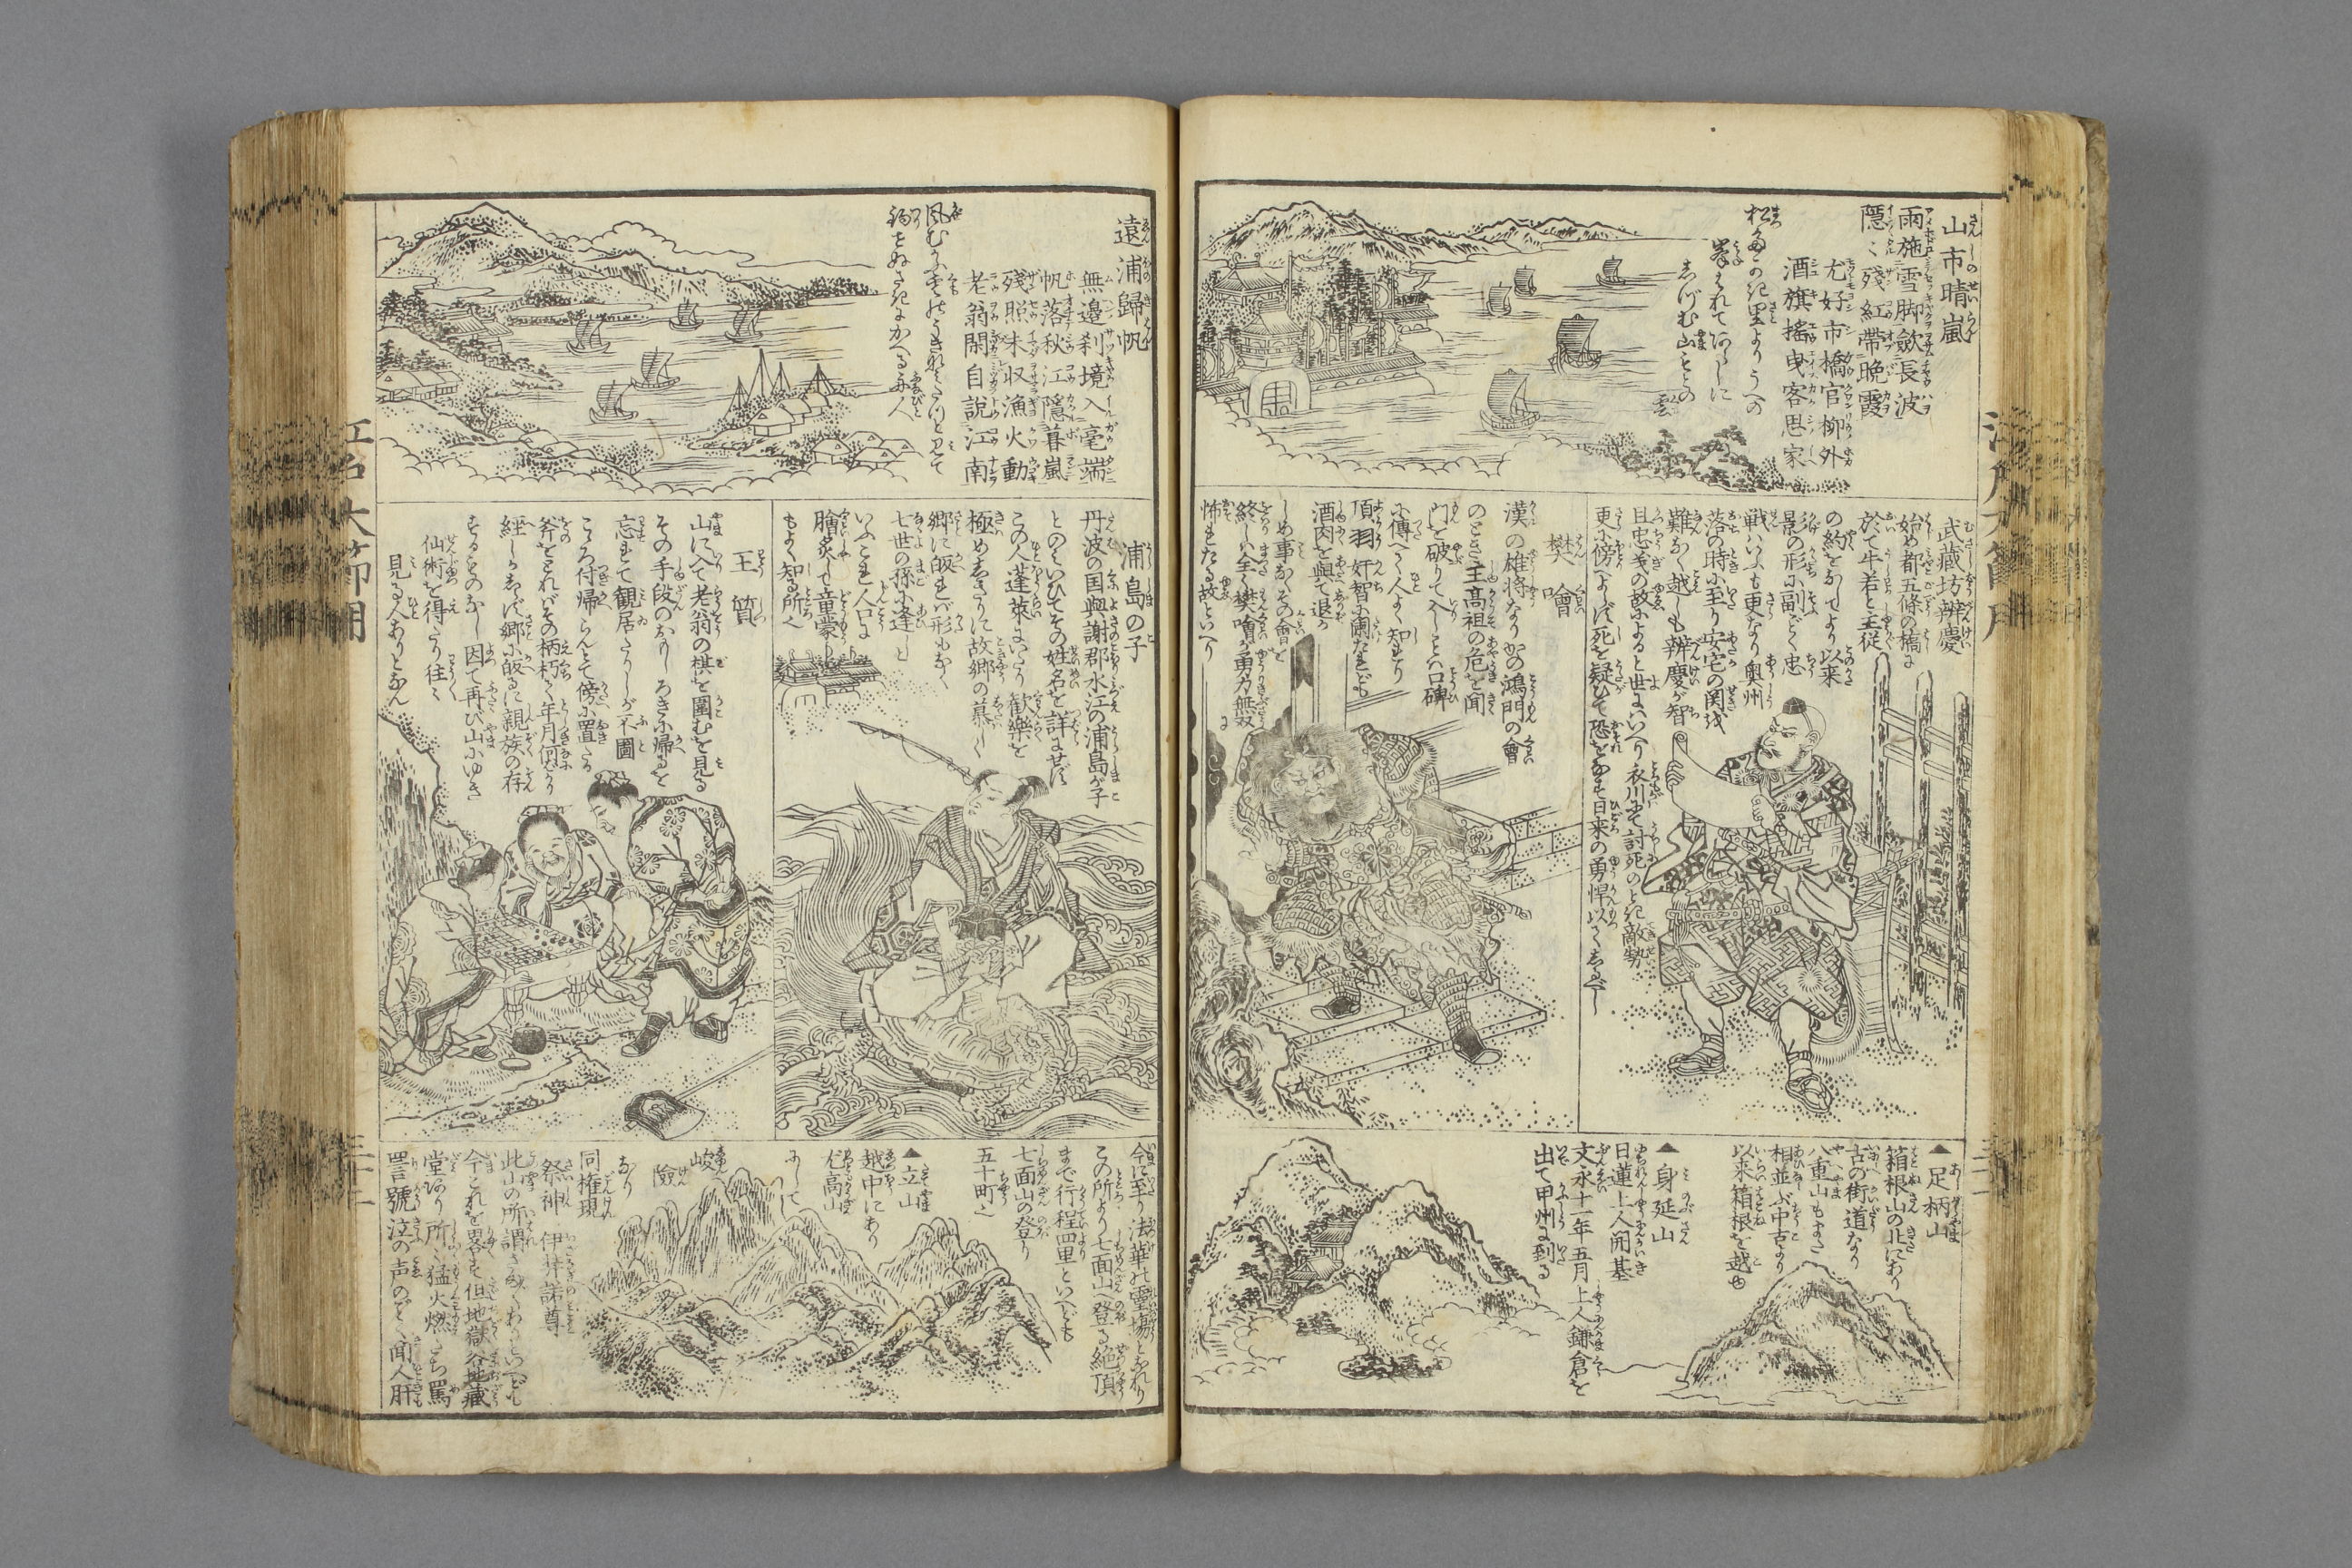 山市晴嵐
雨施雪脚歛長波
隱〻殘紅帶晩霞
尤好市橋官柳外
酒旗搖曳客思家
松たかき里よりうへの
峯はれてあらしに
しづむ山もとの
雲
武藏坊辨慶
始め都五條の橋に
於て牛若と主従
の約をなせしより以来
影の形に副ごとく忠
戦いふも更なり奥州
落の時に至り安宅の関を
難なく越しも辨慶が智
且忠義の故によると世にいへり衣川にて討死のとき敵勢
更に傍へよしず死を疑ひて恐をなす日来の勇悍以てしるべし
樊噲
漢の雄将なりかの鴻門の會
のとき主髙祖の危を聞
門を破りて入しとは口碑
に傳へて人よく知れり
頂羽奸智に闌たれども
酒肉を與て退か
しめ事なくその會を
終しは全く樊噲が勇力無双に
怖れたる故といへり
▲足柄山
箱根山の北にあり
古の街道なり
八重山もまた
相並ぶ中古より
以来箱根を越ゆ
▲身延山
日蓮上人開基
文永十一年五月上人鎌倉を
出て甲州に到る
遠浦歸帆
無邉刹境入毫端
帆落秋江隱暮嵐
殘照未収漁火動
老翁閑自説江南
風むかふ雲のうきなみたつと見て
釣せぬさきにかへる舟人
浦島の子
丹波の国與謝郡水江の浦島が子
とのみいひてその姓名を詳にせず
この人蓬莱にいたり歓樂を
極めしきりに故郷の慕しく
郷に皈れば形もなく
七世の孫に逢しと
いふこれ人口に
膾炙して童蒙
もよく知る所也
王質
山に入て老翁の棋を圍むを見る
その手段のおかしろきに帰るを
忘れて観居たりしが不圖
こゝろ付帰らんとて傍に置たる
斧をとればその柄朽て年月何ばかり
經しかしらず郷に皈るに親族の存
するものなし因て再び山にゆき
仙術を得たり往〻
見る人ありとなん
今に至り法華の靈塲となれり
この所より七面山へ登る絶頂
まで行程四里といへども
七面山の登り
五十町也
▲立山
越中にあり
尤高山
にして
峻
險
なり
同権現
祭神 伊弉諾尊
此山の所謂さま〴〵ありといへども
今これを畧す但地獄谷地藏
堂あり所〻猛火燃たち罵
詈號泣の声のごとく聞人肝